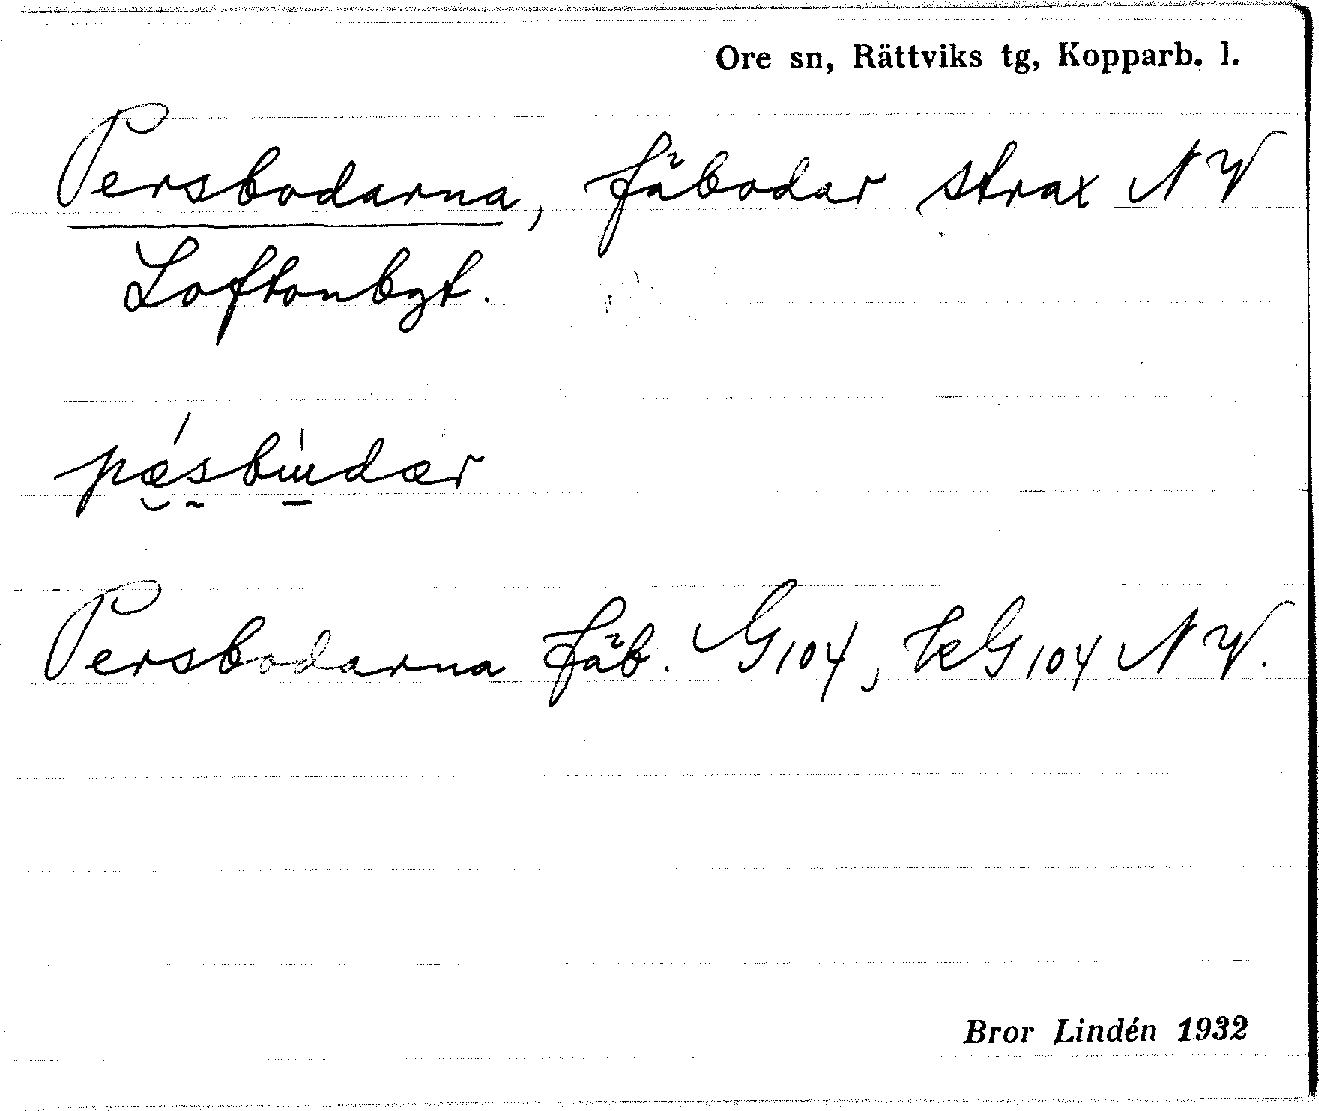 Ore sn, Rättviks tg, Kopparb. l.
Persbodarna, fäbodar strax NV
Loftonbgt.
pæsbɯdær
Persbodarna fäb. G 104, KG 104 NV.
Bror Lindén 1932